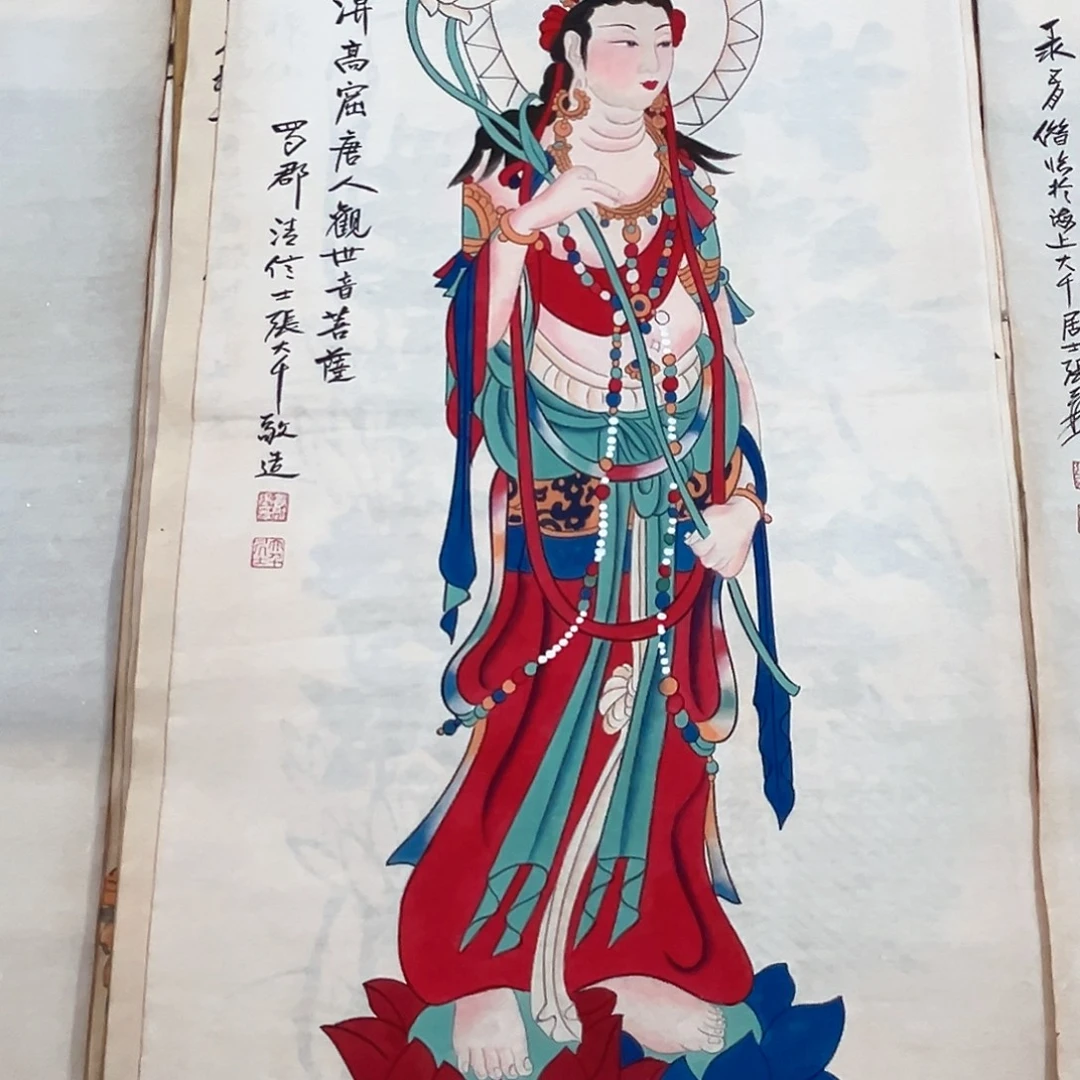 高窟唐人觀世音菩薩
蜀郡清信士張大千敬造
偕臨於海上大千居士張爰